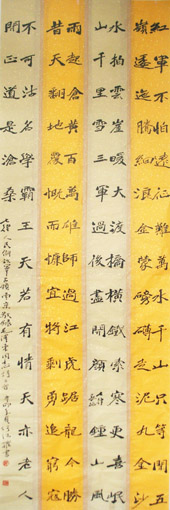 紅軍不怕遠征難萬水千山只等閒五
嶺逶迤騰細浪烏蒙磅礴走泥丸金沙
水拍雲崖暖大渡橋橫鐵索寒更喜岷
山千里雪三軍過後盡開顏鍾山風
雨起倉黃百萬雄師過大江虎踞龍盤今勝
昔天翻地覆慨而慷宜將剩勇追窮寇
不可沽名學霸王天若有情天亦老人
間正道是滄桑
七律人民解放軍占領南京